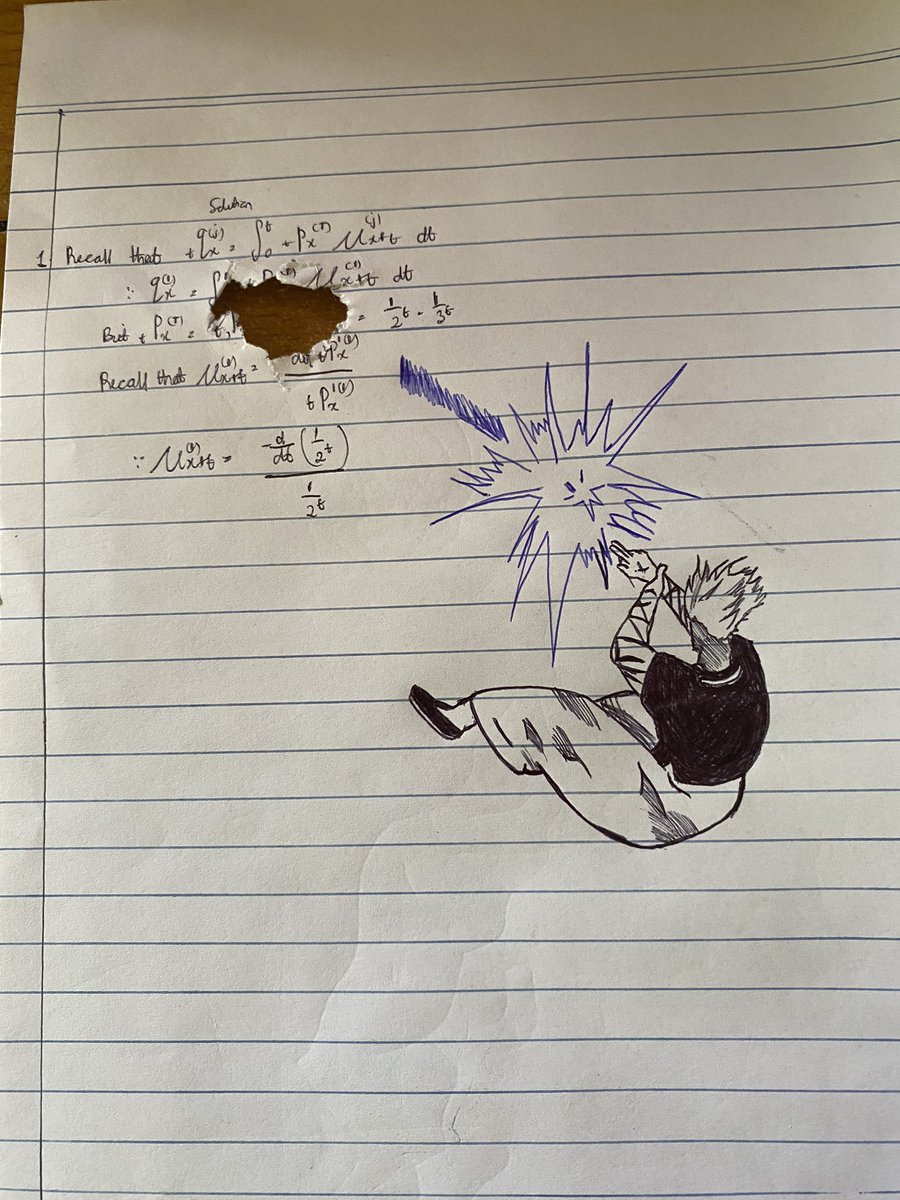 Solution
1 Recall that ₜqₓ⁽ʲ⁾ = ∫₀ᵗ ₜPₓ⁽ᵀ⁾ μₓ₊ₜ⁽ʲ⁾ dt
∵ qₓ⁽¹⁾ = ∫ μₓ₊ₜ⁽¹⁾ dt
But ₜPₓ⁽ᵀ⁾ = = 1/2ᵗ · 1/3ᵗ
Recall that μₓ₊ₜ⁽¹⁾ = ₜPₓ'⁽¹⁾
ₜPₓ'⁽¹⁾
∵ μₓ₊ₜ⁽¹⁾ = -d/dt (1/2ᵗ)
1/2ᵗ